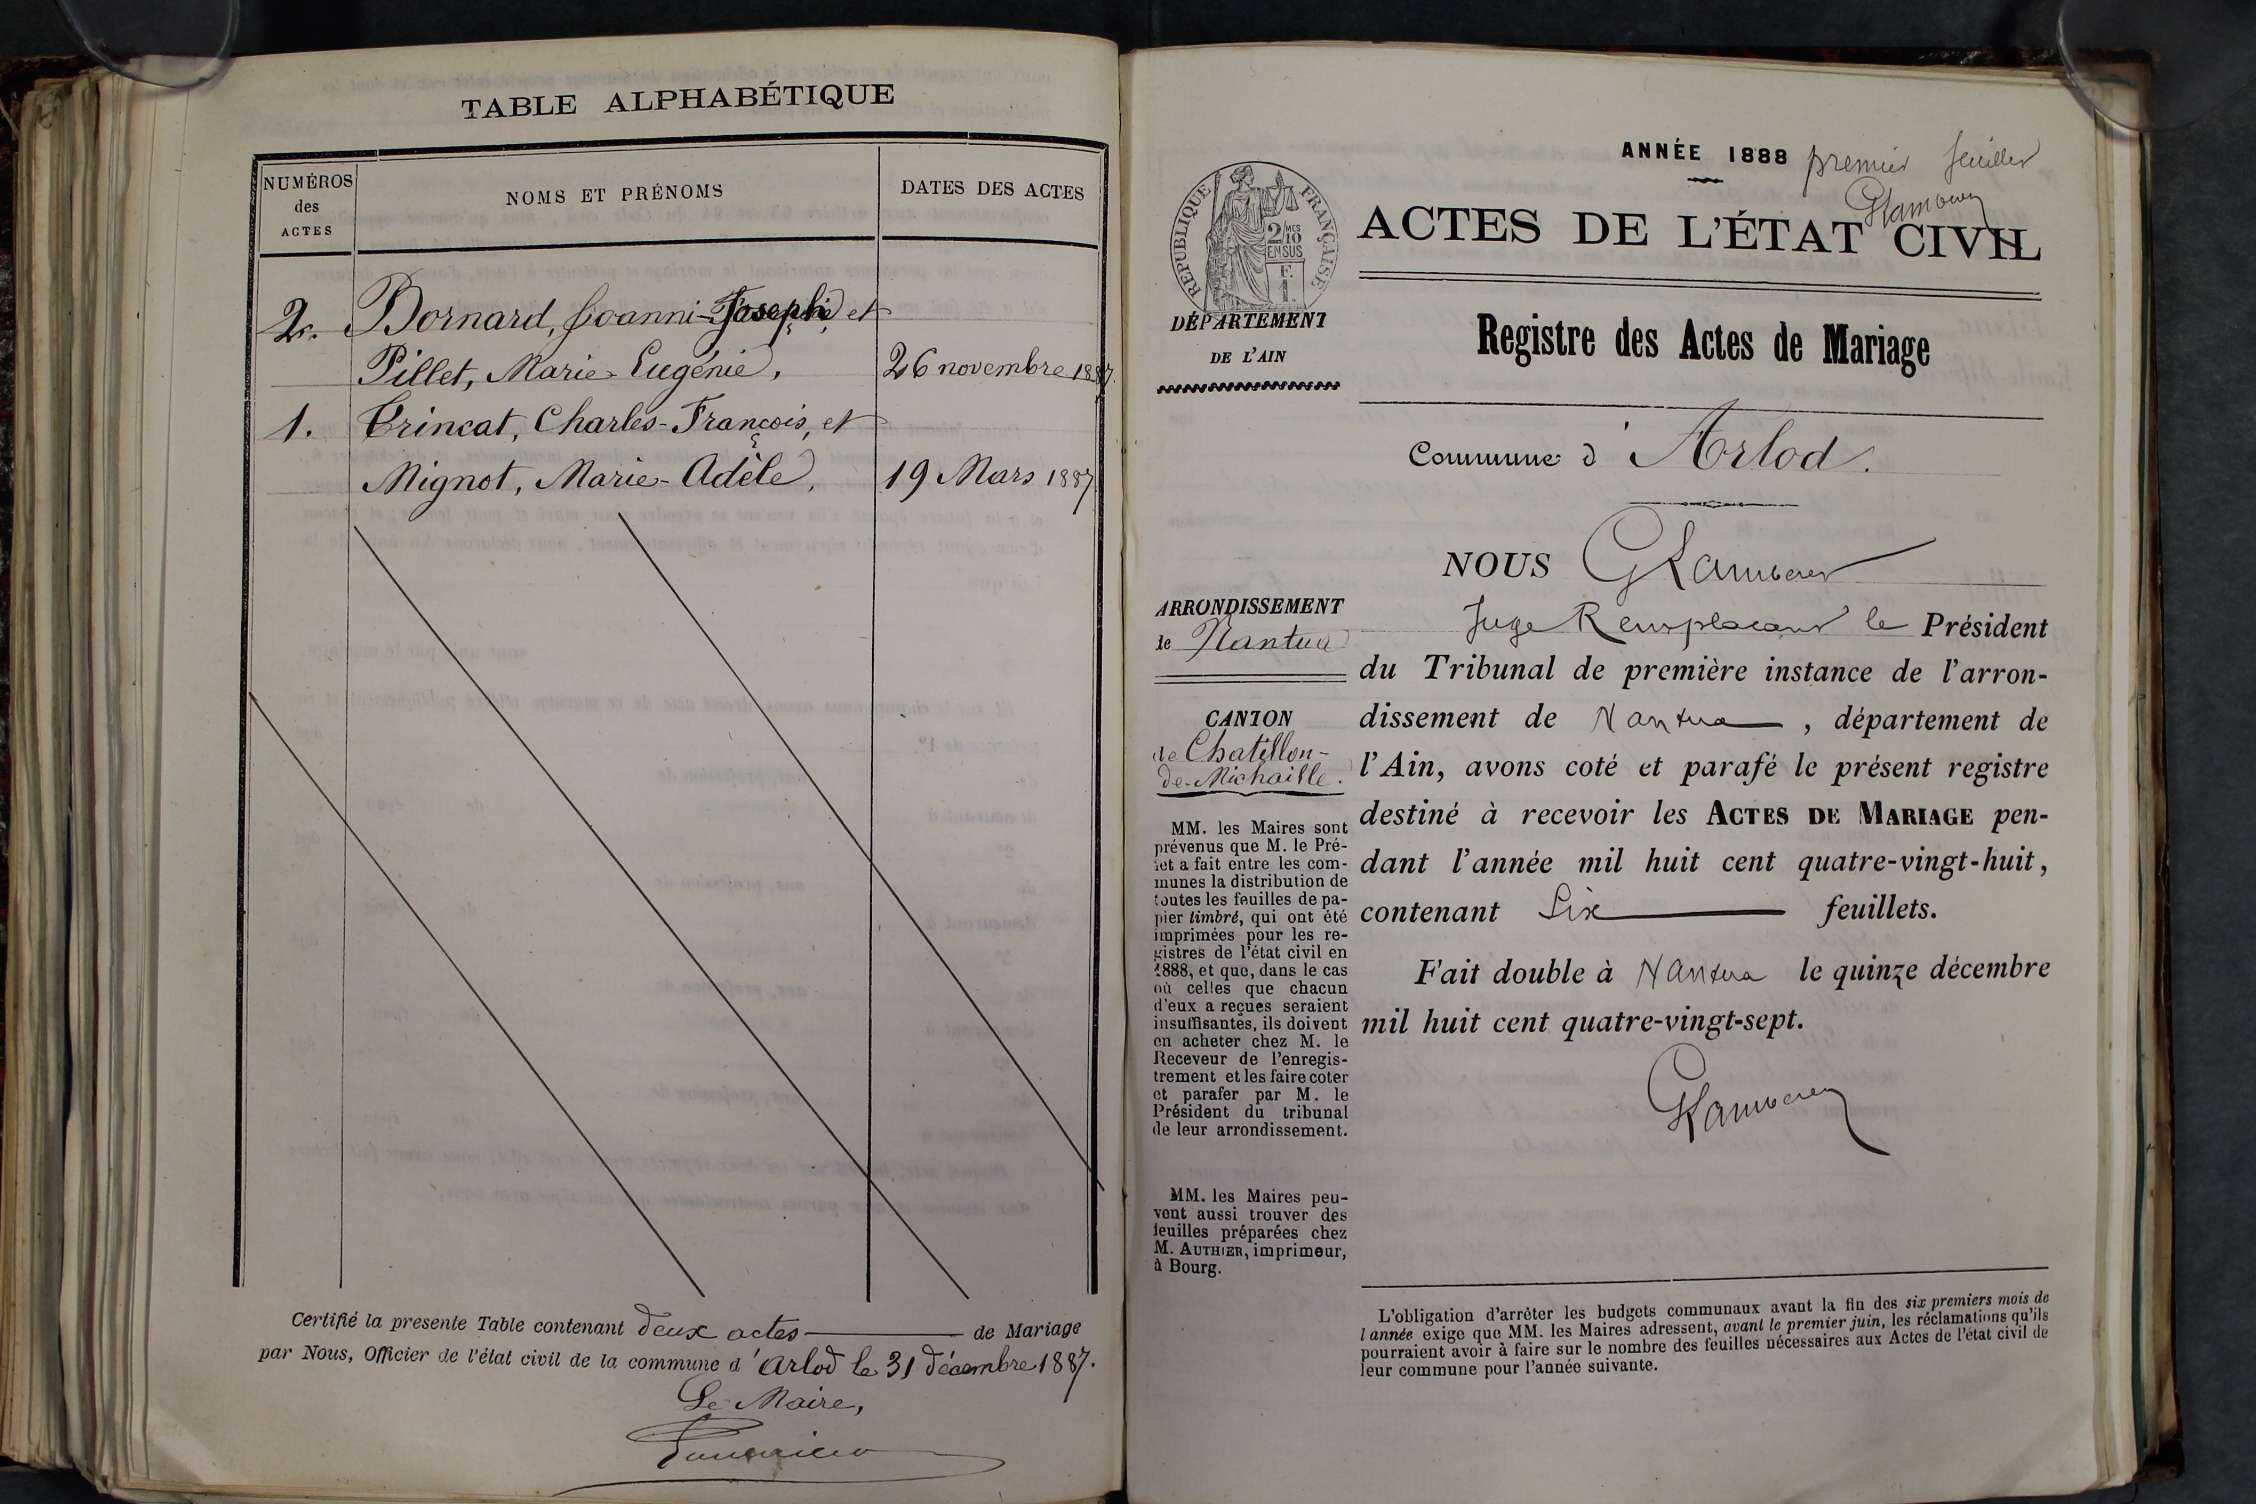 TABLE ALPHABÉTIQUE
NUMÉROS
des
ACTES
NOMS ET PRÉNOMS
DATES DES ACTES
2. Bornard, Joanni-Joseph, et
Pillet, Marie-Eugénie, 26 novembre 1887.
1. Trincat, Charles-François, et
Mignot, Marie-Adèle, 19 Mars 1887
Certifié la presente Table contenant deux actes de Mariage
par Nous, Officier de l'état civil de la commune d'Arlod le 31 décembre 1887.
Le Maire,
ANNÉE 1888 premier feuillet
ACTES DE L'ÉTAT CIVIL
RÉPUBLIQUE FRANÇAISE
2 MES
10
EN SUS
F.
1.
DÉPARTEMENT
DE L'AIN
Registre des Actes de Mariage
Commune d'Arlod.
ARRONDISSEMENT
de Nantua
CANTON
de Chatillon-
de-Michaille.
MM. les Maires sont
prévenus que M. le Pré-
fet a fait entre les com-
munes la distribution de
toutes les feuilles de pa-
pier timbré, qui ont été
imprimées pour les re-
gistres de l'état civil en
1888, et que, dans le cas
où celles que chacun
d'eux a reçues seraient
insuffisantes, ils doivent
en acheter chez M. le
Receveur de l'enregis-
trement et les faire coter
et parafer par M. le
Président du tribunal
de leur arrondissement.
MM. les Maires peu-
vent aussi trouver des
feuilles préparées chez
M. AUTHIER, imprimeur,
à Bourg.
NOUS
Juge Remplaçant le Président
du Tribunal de première instance de l'arron-
dissement de Nantua, département de
l'Ain, avons coté et parafé le présent registre
destiné à recevoir les ACTES DE MARIAGE pen-
dant l'année mil huit cent quatre-vingt-huit,
contenant Six feuillets.
Fait double à Nantua le quinze décembre
mil huit cent quatre-vingt-sept.
L'obligation d'arrêter les budgets communaux avant la fin des six premiers mois de
l'année exige que MM. les Maires adressent, avant le premier juin, les réclamations qu'ils
pourraient avoir à faire sur le nombre des feuilles nécessaires aux Actes de l'état civil de
leur commune pour l'année suivante.